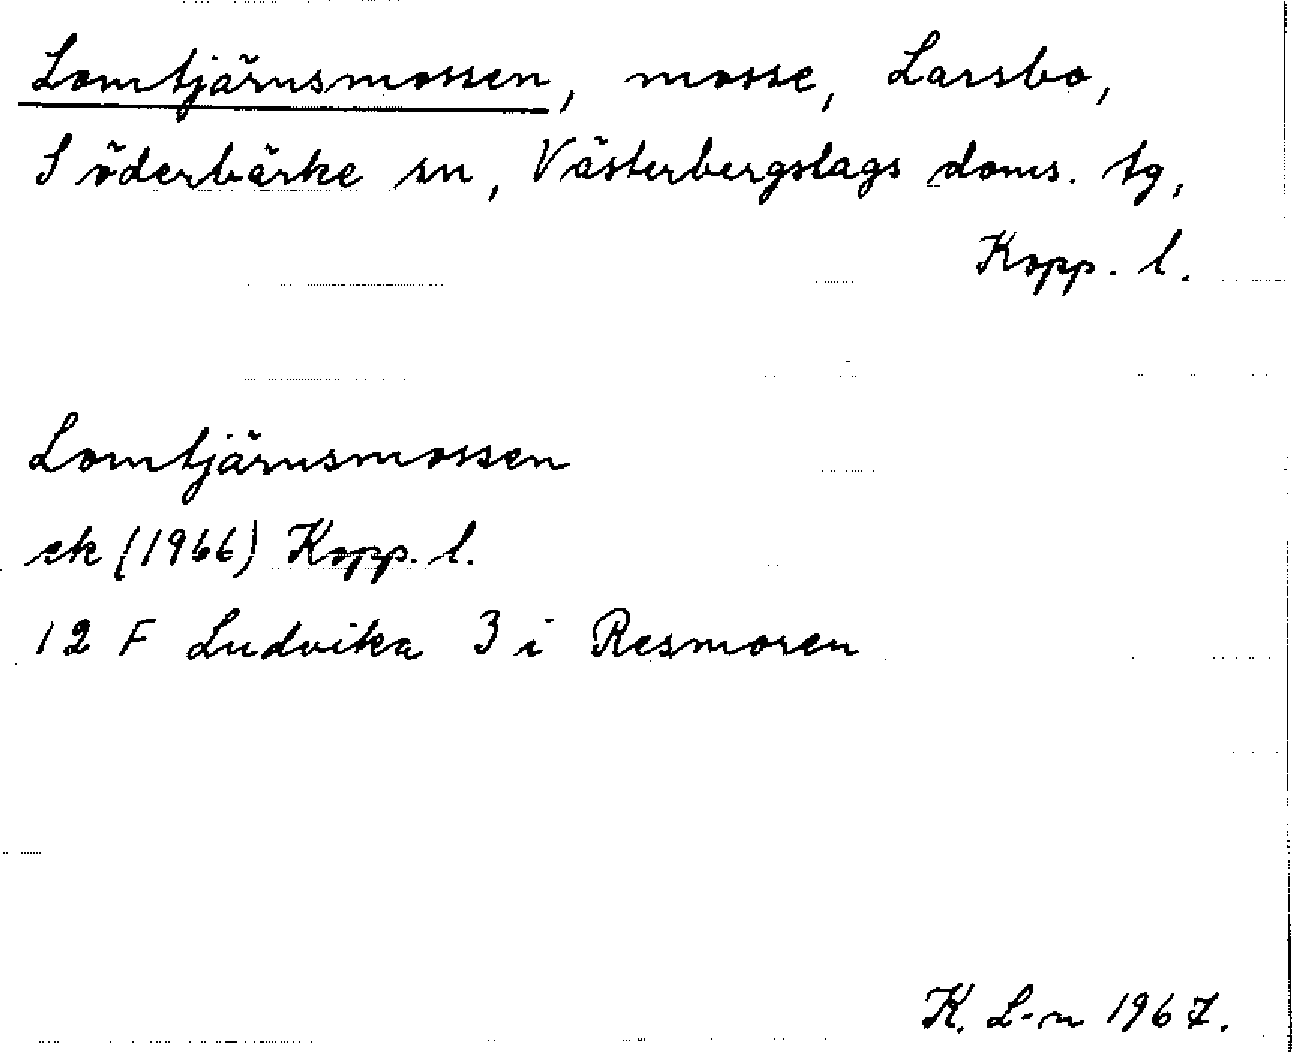 Lomtjärnsmossen, mosse, Larsbo,
Söderbärke sn, Västerbergslags doms. tg,
Kopp. l.
Lomtjärnsmossen
ek (1966) Kopp. l.
12 F Ludvika 3 i Resmoren
K. L-n 1967.